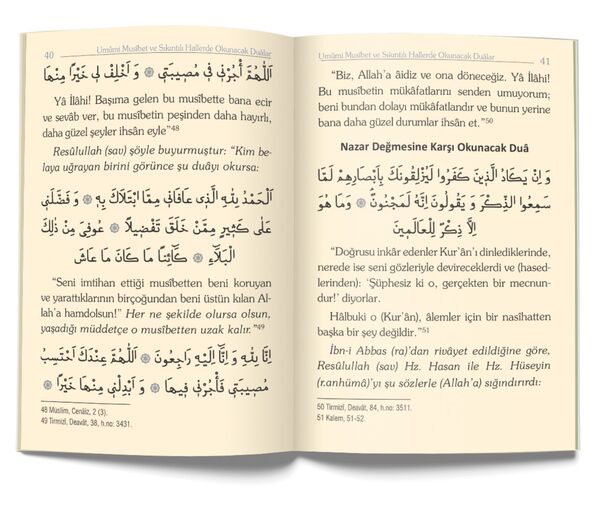 40 Umûmi Musîbet ve Sıkıntılı Hallerde Okunacak Duâlar
اَللّٰهُمَّ أْجُرْنِي فِي مُصِيبَتِي ۞ وَ اَخْلِفْ لِي خَيْرًا مِنْهَا
Yâ İlahi! Başıma gelen bu musîbette bana ecir
ve sevâb ver, bu musîbetin peşinden daha hayırlı,
daha güzel şeyler ihsan eyle”48
Resûlullah (sav) şöyle buyurmuştur: “Kim be-
laya uğrayan birini görünce şu duâyı okursa:
اَلْحَمْدُ لِلّٰهِ الَّذِي عَافَانِي مِمَّا ابْتَلَاكَ بِهِ ۞ وَ فَضَّلَنِي
عَلَى كَثِيرٍ مِمَّنْ خَلَقَ تَفْضِيلًا ۞ عُوفِيَ مِنْ ذٰلِكَ
الْبَلَاءِ ۞ كَائِنًا مَا كَانَ مَا عَاشَ
“Seni imtihan ettiği musîbetten beni koruyan
ve yarattıklarının birçoğundan beni üstün kılan Al-
lah’a hamdolsun!” Her ne şekilde olursa olsun,
yaşadığı müddetçe o musîbetten uzak kalır.”49
اِنَّا لِلّٰهِ وَ اِنَّا اِلَيْهِ رَاجِعُونَ ۞ اَللّٰهُمَّ عِنْدَكَ اَحْتَسِبُ
مُصِيبَتِي فَأْجُرْنِي فِيهَا ۞ وَ اَبْدِلْنِي مِنْهَا خَيْرًا ۞
48 Müslim, Cenâiz, 2 (3).
49 Tirmizî, Deavât, 38, h.no: 3431.
Umûmi Musîbet ve Sıkıntılı Hallerde Okunacak Duâlar 41
“Biz, Allah’a âidiz ve ona döneceğiz. Yâ İlâhi!
Bu musîbetin mükâfatlarını senden umuyorum;
beni bundan dolayı mükâfatlandır ve bunun yerine
bana daha güzel durumlar ihsân et.”50
Nazar Değmesine Karşı Okunacak Duâ
وَ اِنْ يَكَادُ الَّذِينَ كَفَرُوا لَيُزْلِقُونَكَ بِاَبْصَارِهِمْ لَمَّا
سَمِعُوا الذِّكْرَ وَ يَقُولُونَ اِنَّهُ لَمَجْنُونٌ ۞ وَمَا هُوَ
اِلَّا ذِكْرٌ لِلْعَالَمِينَ
“Doğrusu inkâr edenler Kur’ân’ı dinlediklerinde,
nerede ise seni gözleriyle devireceklerdi ve (hased-
lerinden): ‘Şüphesiz ki o, gerçekten bir mecnun-
dur!’ diyorlar.
Hâlbuki o (Kur’ân), âlemler için bir nasîhatten
başka bir şey değildir.”51
İbn-i Abbas (ra)’dan rivâyet edildiğine göre,
Resûlullah (sav) Hz. Hasan ile Hz. Hüseyin
(r.anhümâ)’yı şu sözlerle (Allah’a) sığındırırdı:
50 Tirmizî, Deavât, 84, h.no: 3511.
51 Kalem, 51-52.